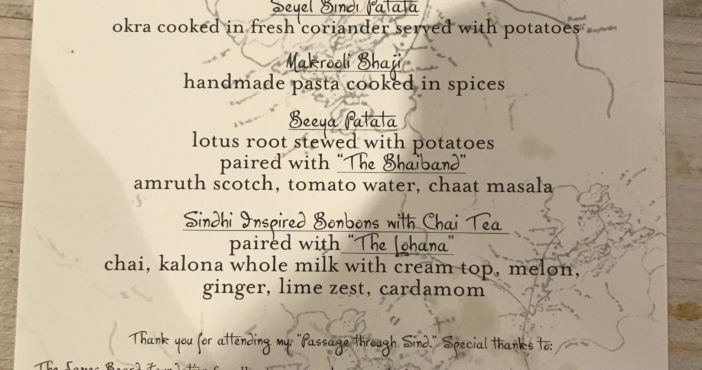 Seyel Bindi Patata
okra cooked in fresh coriander served with potatoes
Makrooli Bhaji
handmade pasta cooked in spices
Beeya Patata
lotus root stewed with potatoes
paired with "The Bhaiband"
amruth scotch, tomato water, chaat masala
Sindhi Inspired Bonbons with Chai Tea
paired with "The Lohana"
chai, kalona whole milk with cream top, melon,
ginger, lime zest, cardamom
Thank you for attending my "Passage through Sind." Special thanks to:
The James Beard